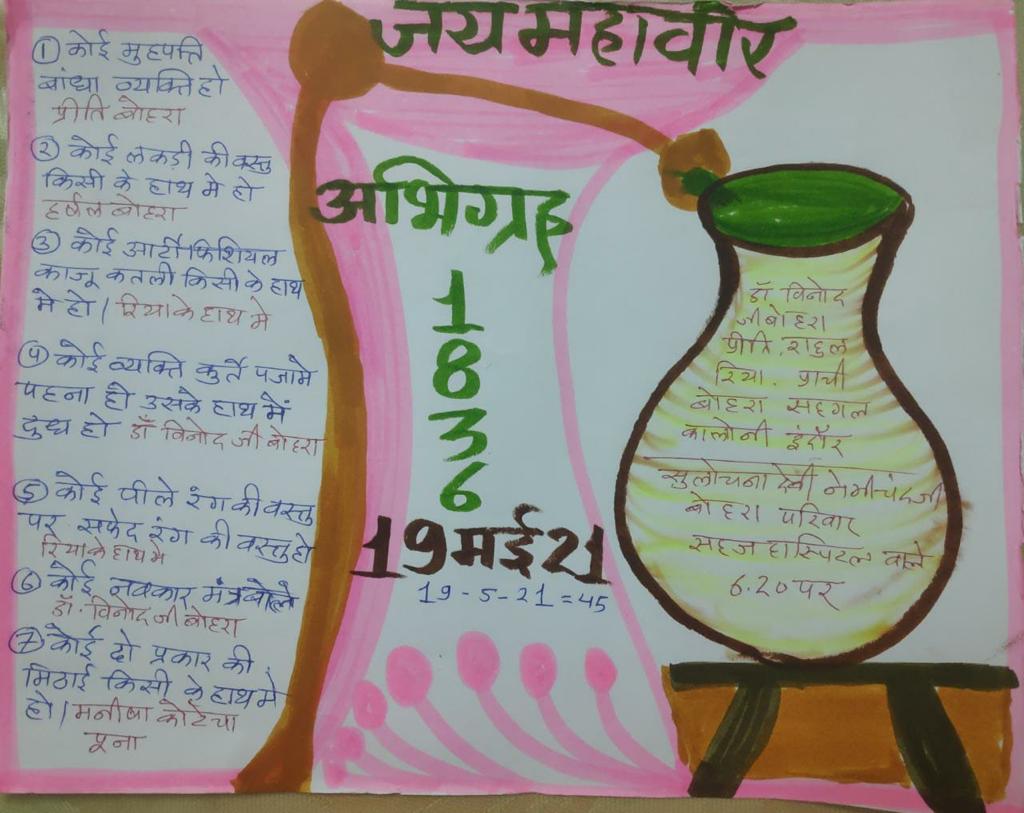 जय महावीर
① कोई मुहपत्ति
बांधा व्यक्ति हो
प्रीति बोहरा
② कोई लकड़ी की वस्तु
किसी के हाथ मे हो
हर्षल बोहरा
③ कोई आर्टीफिशियल
काजू कतली किसी के हाथ
मे हो / रिया के हाथ मे
④ कोई व्यक्ति कुर्ते पजामे
पहना हो उसके हाथ में
दुध हो डॉ विनोद जी बोहरा
⑤ कोई पीले रंग की वस्तु
पर सफेद रंग की वस्तु हो
रिया के हाथ मे
⑥ कोई नवकार मंत्र बोले
डॉ. विनोद जी बोहरा
⑦ कोई दो प्रकार की
मिठाई किसी के हाथ मे
हो / मनीषा कोटेचा
पूना
अभिग्रह
1
8
3
6
19 मई 21
19-5-21=45
डॉ विनोद
जी बोहरा
प्रीति, राहुल
रिया. प्राची
बोहरा सहगल
कालोनी इंदौर
सुलोचना देवी नेमीचंद जी
बोहरा परिवार
सहज हास्पिटल वाले
6.20 पर